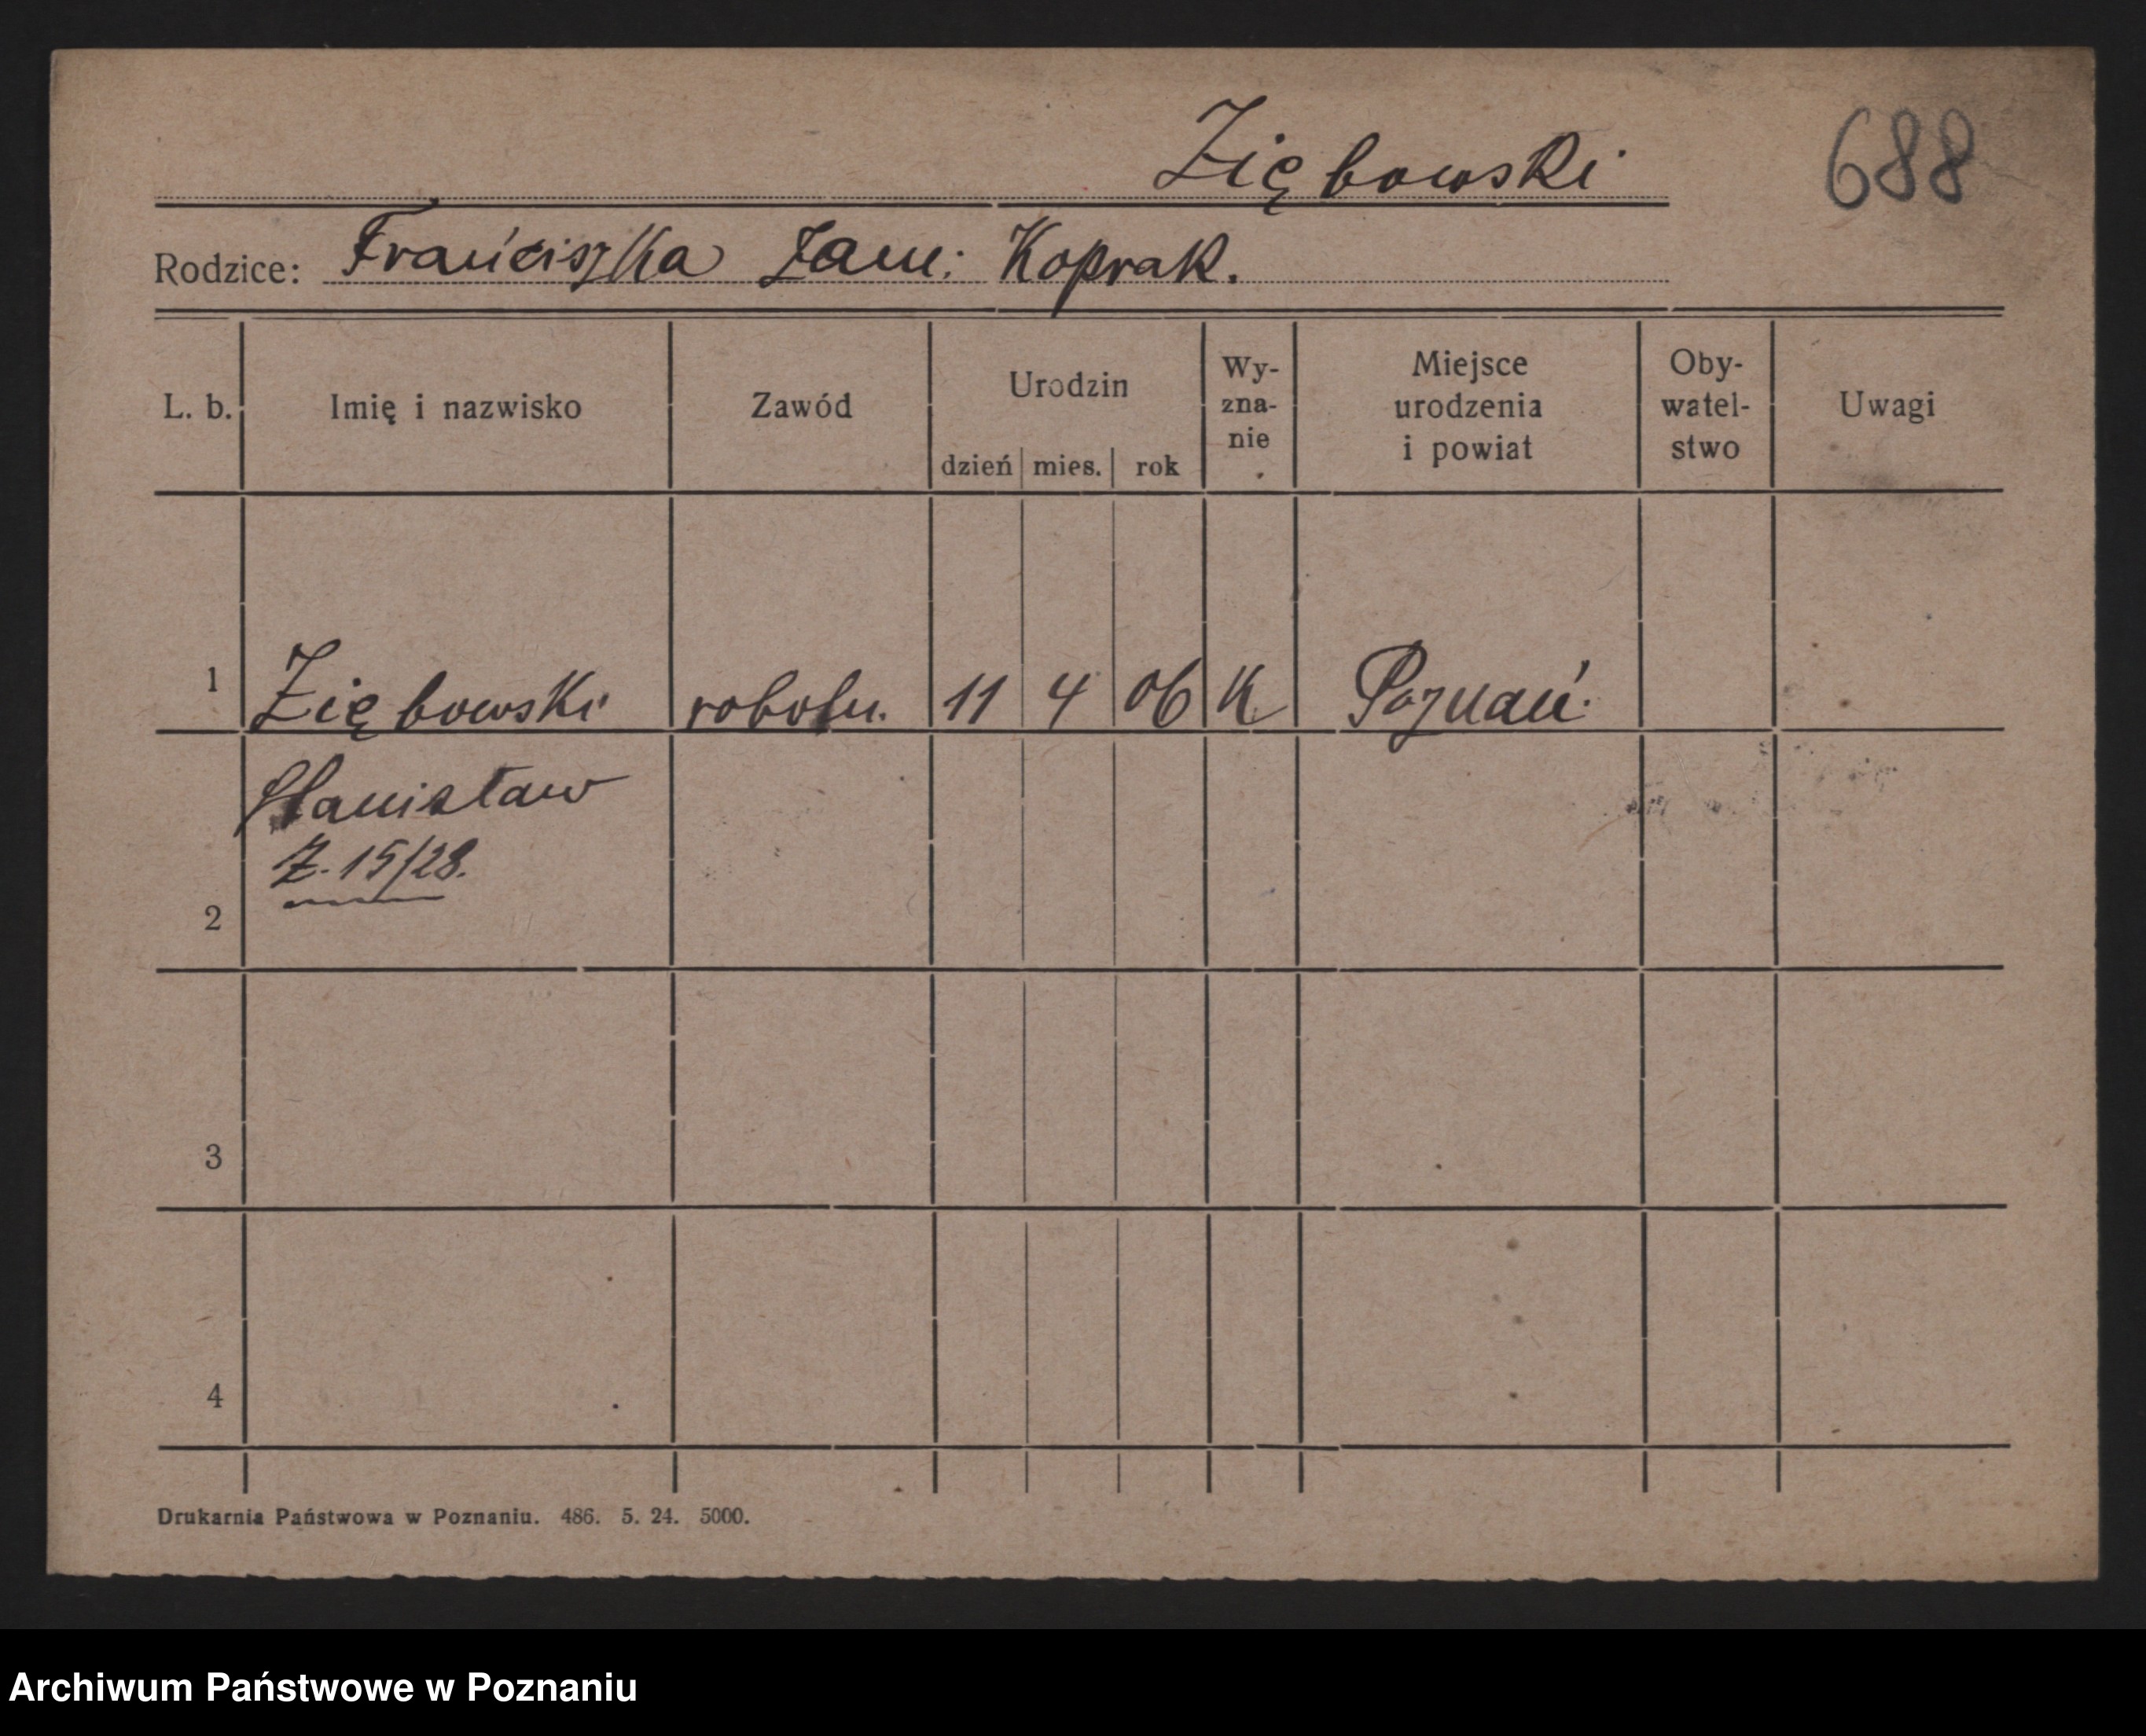 Ziębowski
688
Rodzice: Franciszka zam: Koprak.
L. b. Imię i nazwisko Zawód Urodzin dzień mies. rok Wy-zna-nie Miejsce urodzenia i powiat Oby-watel-stwo Uwagi
1 Ziębowski robotn. 11 4 06 K Poznań.
Stanisław
Z. 15/28.
2
3
4
Drukarnia Państwowa w Poznaniu. 486. 5. 24. 5000.
Archiwum Państwowe w Poznaniu